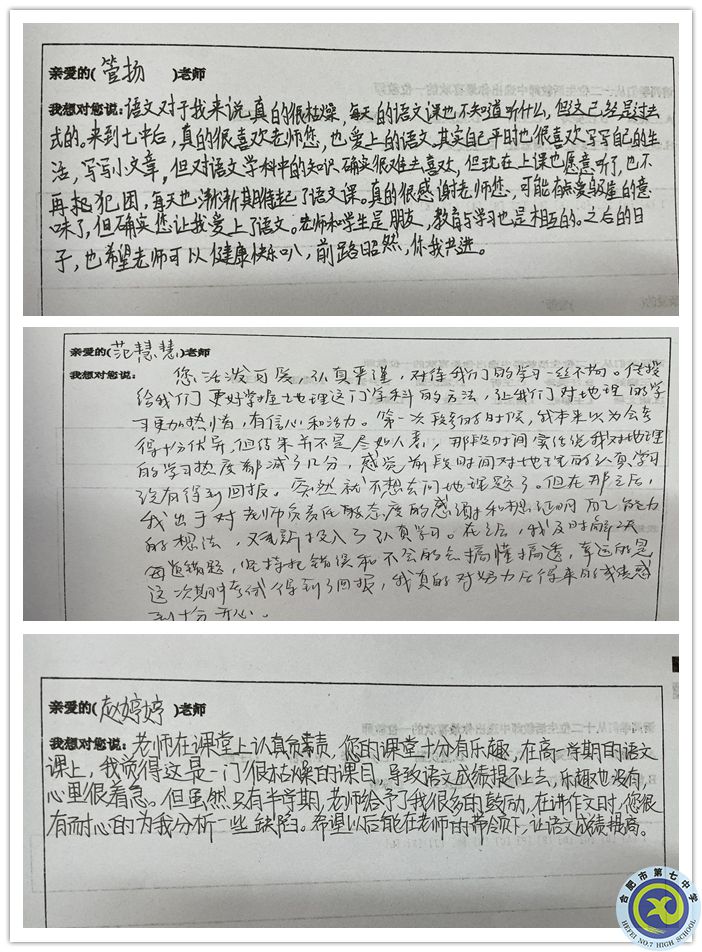 亲爱的(管扬)老师
我想对您说:语文对于我来说,真的很枯燥,每天的语文课也不知道听什么,但这已经是过去
式的。来到七中后,真的很喜欢老师您,也爱上的语文。其实自己平时也很喜欢写写自己的生
活,写写小文章,但对语文学科中的知识确实很难去喜欢,但现在上课也愿意听了,也不
再把犯困,每天也渐渐期待起了语文课。真的很感谢老师您,可能有点爱屋及屋的意
味了,但确实您让我爱上了语文。老师和学生是朋友,教育与学习也是相互的。之后的日
子,也希望老师可以健康快乐叭,前路昭然,你我共进。
亲爱的(范慧慧)老师
我想对您说: 您活泼可爱,认真严谨,对待我们的学习一丝不拘。传授
给我们更好学握地理这门学科的方法,让我们对地理的学
习更加热情,有信心和活力。第一次段考的时候,我本来以为会考
得十分优异,但结果并不是尽如人意,那段时间实话说我对地理
的学习热度都减了几分,感觉前段时间对地理的认真学习
没有得到回报。突然就不想去问地理题了。但在那之后,
我出于对老师负责任教态度的感谢和想证明自己能力
的想法,又重新投入了认真学习。在之后,我及时解决
每道错题,坚持把错误和不会的点搞懂搞透,幸运的是
这次期中考试得到了回报,我真的对努力后得来的成绩感
到十分开心。
亲爱的(赵婷婷)老师
我想对您说:老师在课堂上认真负责,您的课堂十分有乐趣,在高一学期的语文
课上,我觉得这是一门很枯燥的课目,导致语文成绩提不上去,乐趣也没有,
心里很着急。但虽然只有半学期,老师给予了我很多的鼓励,在讲作文时,您很
有耐心的为我分析一些缺陷。希望以后能在老师的带领下,让语文成绩提高。
合肥市第七中学
HEFEI NO.7 HIGH SCHOOL